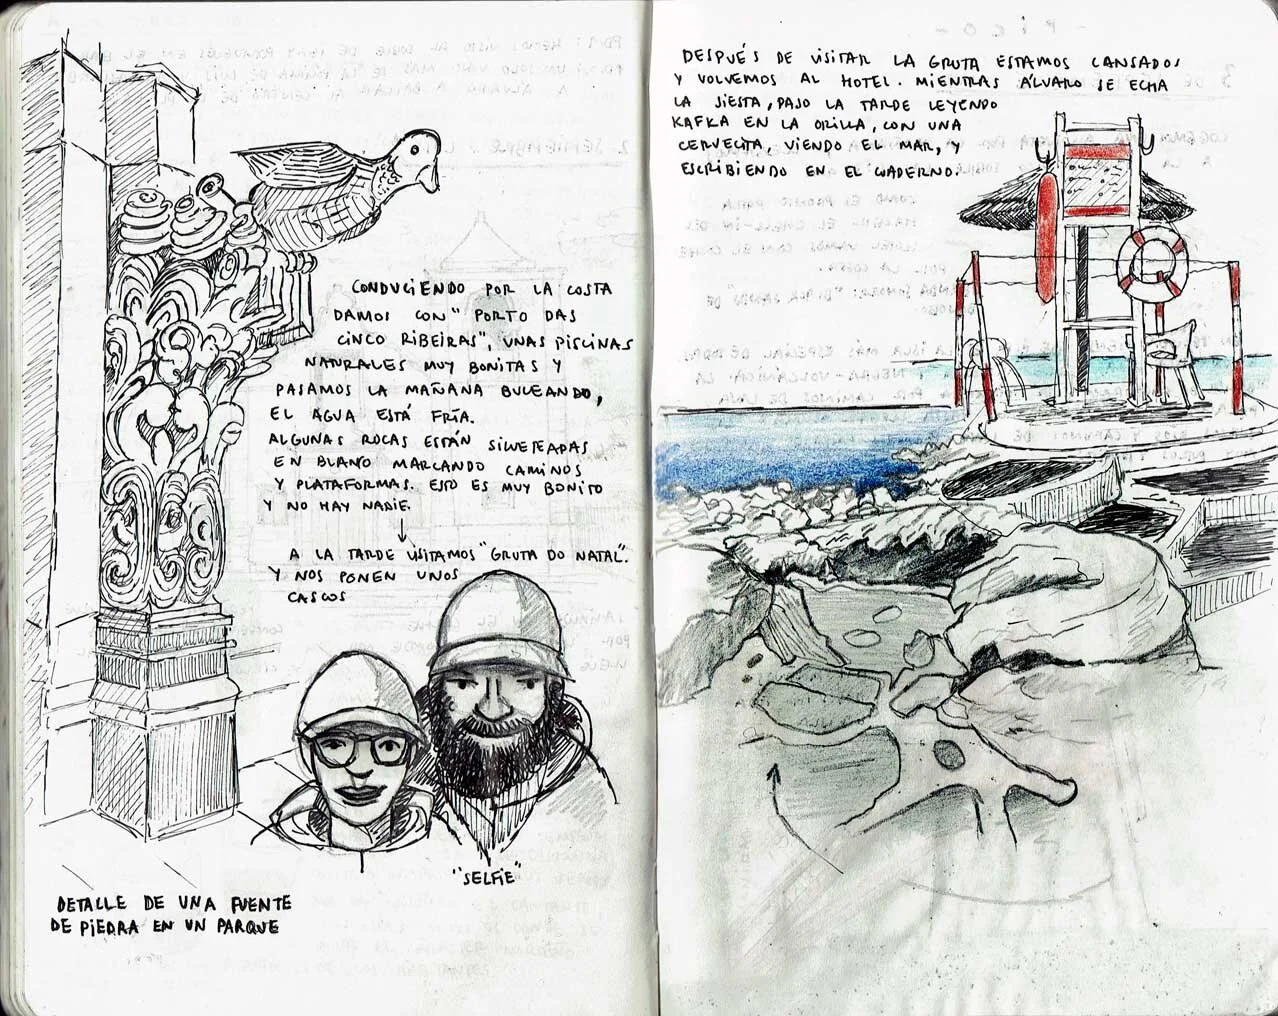 CONDUCIENDO POR LA COSTA
DAMOS CON "PORTO DAS
CINCO RIBEIRAS", UNAS PISCINAS
NATURALES MUY BONITAS Y
PASAMOS LA MAÑANA BUCEANDO,
EL AGUA ESTÁ FRÍA.
ALGUNAS ROCAS ESTÁN SILUETEADAS
EN BLANO MARCANDO CAMINOS
Y PLATAFORMAS. ESTO ES MUY BONITO
Y NO HAY NADIE.
A LA TARDE VISITAMOS "GRUTA DO NATAL".
Y NOS PONEN UNOS
CASCOS
"SELFIE"
DETALLE DE UNA FUENTE
DE PIEDRA EN UN PARQUE
DESPUÉS DE VISITAR LA GRUTA ESTAMOS CANSADOS
Y VOLVEMOS AL HOTEL. MIENTRAS ÁLVARO SE ECHA
LA SIESTA, PASO LA TARDE LEYENDO
KAFKA EN LA ORILLA, CON UNA
CERVECITA, VIENDO EL MAR, Y
ESCRIBIENDO EN EL CUADERNO.